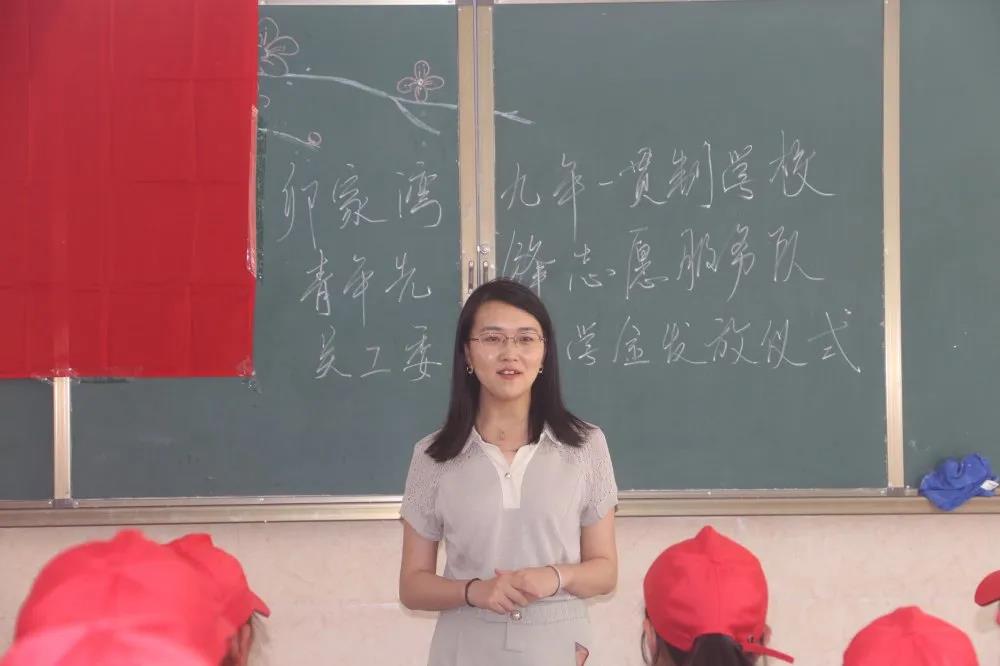 卯家湾九年一贯制学校
青年先锋志愿服务队
关工委学金发放仪式